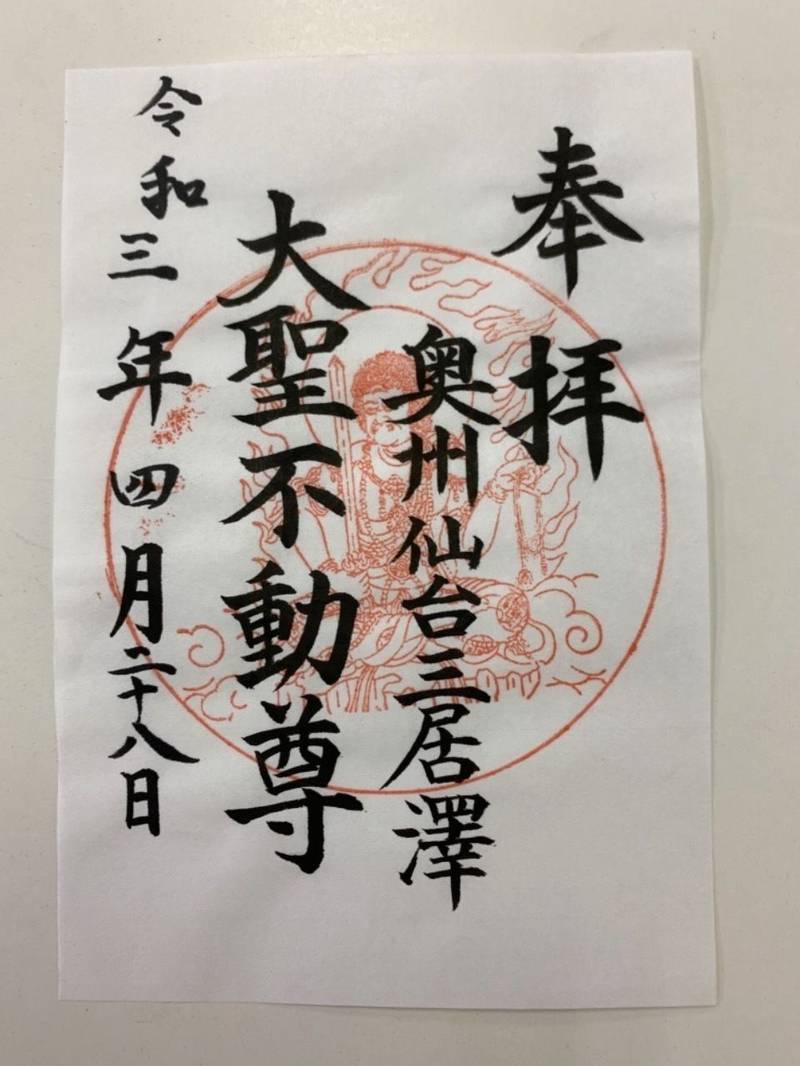 奉拝
奥州仙台三居澤
大聖不動尊
令和三年四月二十八日